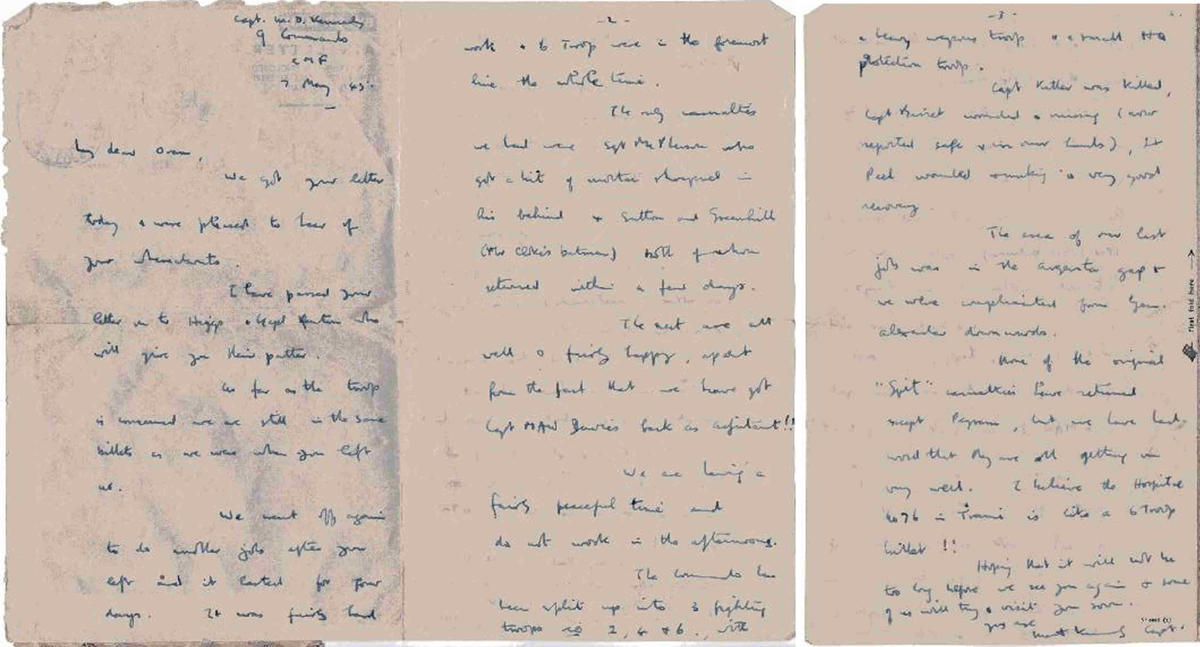 Capt. M. D. Kennedy
9 Commando
CMF
7 May 45.
My dear Oram,
We got your letter
today & were pleased to hear of
your whereabouts.
I have passed your
letter on to Higgs & Capt who
will give you their patter.
As far as the troop
is concerned we are still in the same
billets as we were when you left
us.
We went off again
to do another job after you
left and it lasted for four
days. It was fairly hard
-2-
work & 6 Troop were in the foremost
line the whole time.
The only casualties
we had were Sgt McPherson who
got a bit of mortar shrapnel in
his behind & Sutton and Greenhill
(Mr batman) both of whom
returned within a few days.
The rest are all
well & fairly happy, apart
from the fact that we have got
Capt MAW Davies back as adjutant!!
We are having a
fairly peaceful time and
do not work in the afternoons.
The Commando has
been split up into 3 fighting
troops ie 2, 4 & 6, with
-3-
a heavy weapons troop & a small HQ
protection troop.
Capt was killed,
Capt wounded & missing (now
reported safe & in our hands), Lt
Peel wounded & making a very good
recovery.
The area of our last
job was in the Argenta gap &
we were complimented from Gen.
Alexander downwards.
None of the original
"Spit" casualties have returned
except , but we have had
word that they are all getting on
very well. I believe the Hospital
No 76 in Trani is like a 6 Troop
billet !!
Hoping that it will not be
too long before we see you again & some
of us will try & visit you soon.
Yours
Kennedy Capt.
First fold here